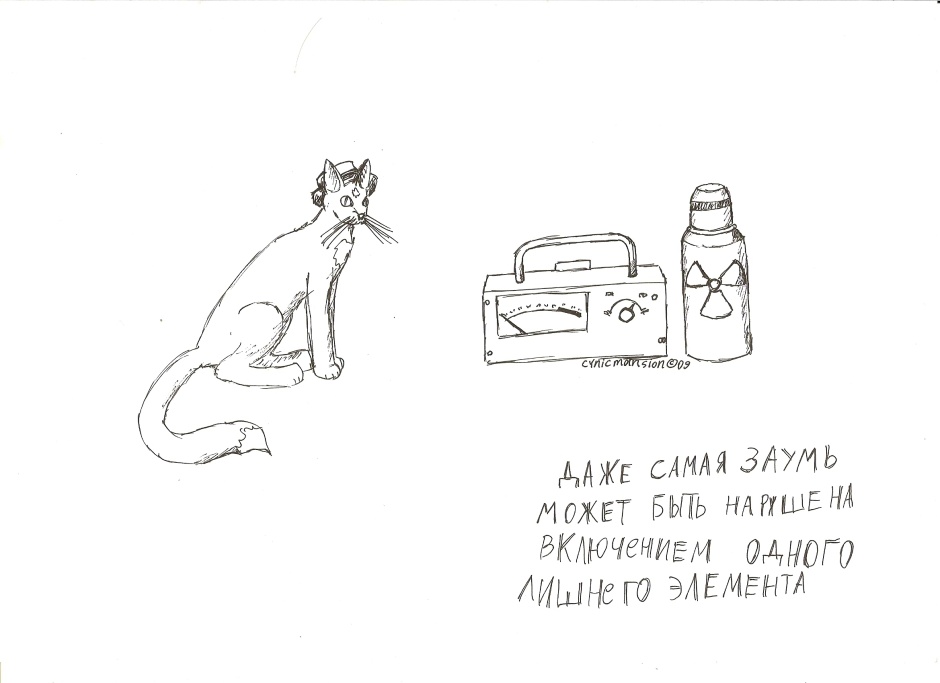 cynicmansion©09
ДАЖЕ САМАЯ ЗАУМЬ
МОЖЕТ БЫТЬ НАРУШЕНА
ВКЛЮЧЕНИЕМ ОДНОГО
ЛИШНЕГО ЭЛЕМЕНТА